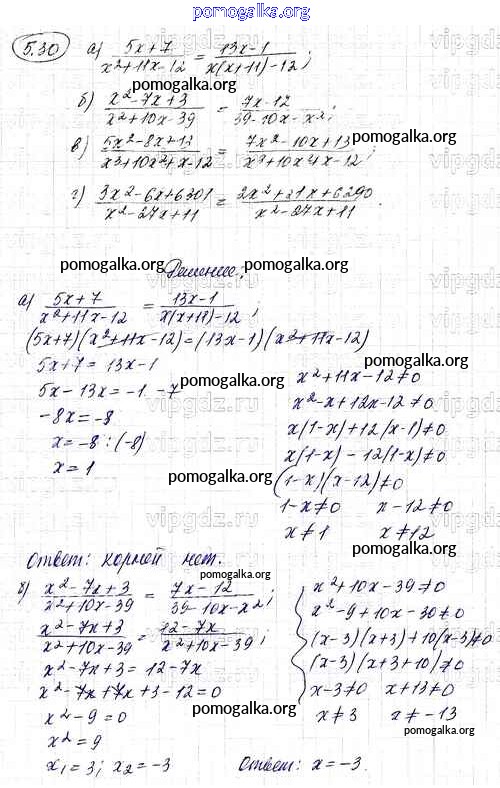 pomogalka.org
5.30 а) (5x+7)/(x²+11x-12) = (13x-1)/(x(x+11)-12);
pomogalka.org
б) (x²-7x+3)/(x²+10x-39) = (7x-12)/(39-10x-x²);
pomogalka.org
в) (5x²-8x+13)/(x³+10x²+x-12) = (7x²-10x+13)/(x³+10x4x-12);
г) (3x²-6x+6301)/(x²-27x+11) = (2x²+21x+6290)/(x²-27x+11).
pomogalka.org
Решение: pomogalka.org
pomogalka.org
а) (5x+7)/(x²+11x-12) = (13x-1)/(x(x+11)-12);
(5x+7)(x²+11x-12)=(13x-1)(x²+11x-12)
5x+7=13x-1
5x-13x=-1-7
-8x=-8
x=-8:(-8)
x=1
x²+11x-12≠0
x²-x+12x-12≠0
x(1-x)+12(x-1)≠0
x(1-x)-12(1-x)≠0
pomogalka.org
(1-x)(x-12)≠0
1-x≠0 x-12≠0
x≠1 x≠12
Ответ: корней нет.
pomogalka.org
б) (x²-7x+3)/(x²+10x-39) = (7x-12)/(39-10x-x²);
(x²-7x+3)/(x²+10x-39) = (12-7x)/(x²+10x-39);
x²-7x+3=12-7x
x²-7x+7x+3-12=0
x²-9=0
x²=9
x₁=3; x₂=-3
x²+10x-39≠0
x²-9+10x-30≠0
(x-3)(x+3)+10(x-3)≠0
(x-3)(x+3+10)≠0
x-3≠0 x+13≠0
x≠3 x≠-13
pomogalka.org
pomogalka.org
Ответ: x=-3.
pomogalka.org